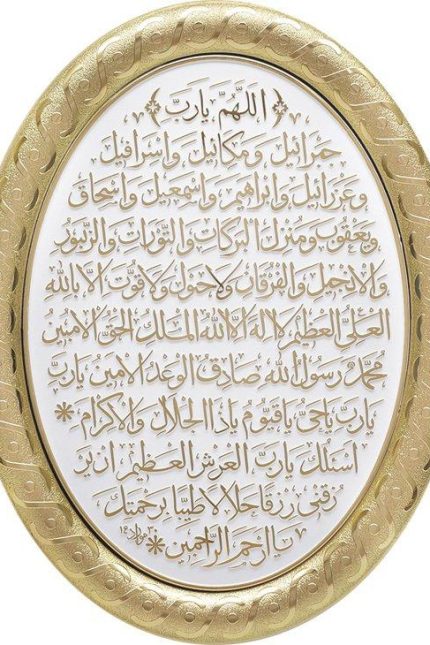 ﴿ اَللّٰهُمَّ يَارَبَّ ﴾
جَبْرَائِيلَ وَمِيكَائِيلَ وَاِسْرَافِيلَ
وَعَزْرَائِيلَ وَاِبْرَاهِيمَ وَاِسْمٰعِيلَ وَاِسْحَاقَ
وَيَعْقُوبَ وَمُنْزِلَ الْبَرَكَاتِ وَالتَّوْرَاتِ وَالزَّبُورِ
وَالْاِنْجِيلِ وَالْفُرْقَانِ وَلَاحَوْلَ وَلَاقُوَّتَ اِلَّا بِاللّٰهِ
الْعَلِىِّ الْعَظِيمِ لَااِلٰهَ اِلَّا اللّٰهُ الْمَلِكُ الْحَقُّ الْمُبِينُ
مُحَمَّدٌ رَسُولُ اللّٰهِ صَادِقُ الْوَعْدِ الْاَمِينُ يَارَبِّ
يَارَبِّ يَاحَىُّ يَاقَيُّومُ يَاذَا الْجَلَالِ وَالْاِكْرَامِ ❋
اَسْئَلُكَ يَارَبَّ الْعَرْشِ الْعَظِيمِ اَنْ يَرْ
زُقَنِى رِزْقًا حَلَالًا طَيِّبًا بِرَحْمَتِكَ
يَا اَرْحَمَ الرَّاحِمِينَ ❋